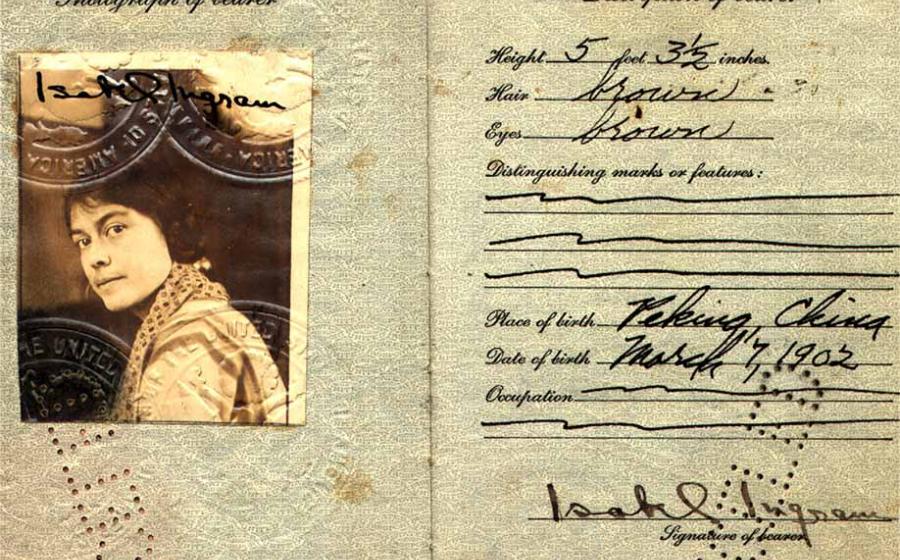 Photograph of bearer
Isabel Ingram
OF AMERICA
THE UNITED
UNITED
Height 5 feet 3½ inches.
Hair brown
Eyes brown
Distinguishing marks or features:
Place of birth Peking, China
Date of birth March 7, 1902
Occupation
Isabel Ingram
Signature of bearer